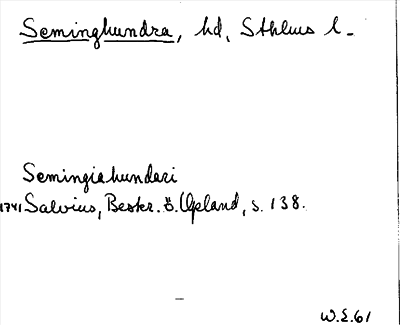 Seminghundra, hd, Sthlms l.
Semingiahundari
1741 Salvius, Beskr. ö. Upland, s. 138.
W.E.61